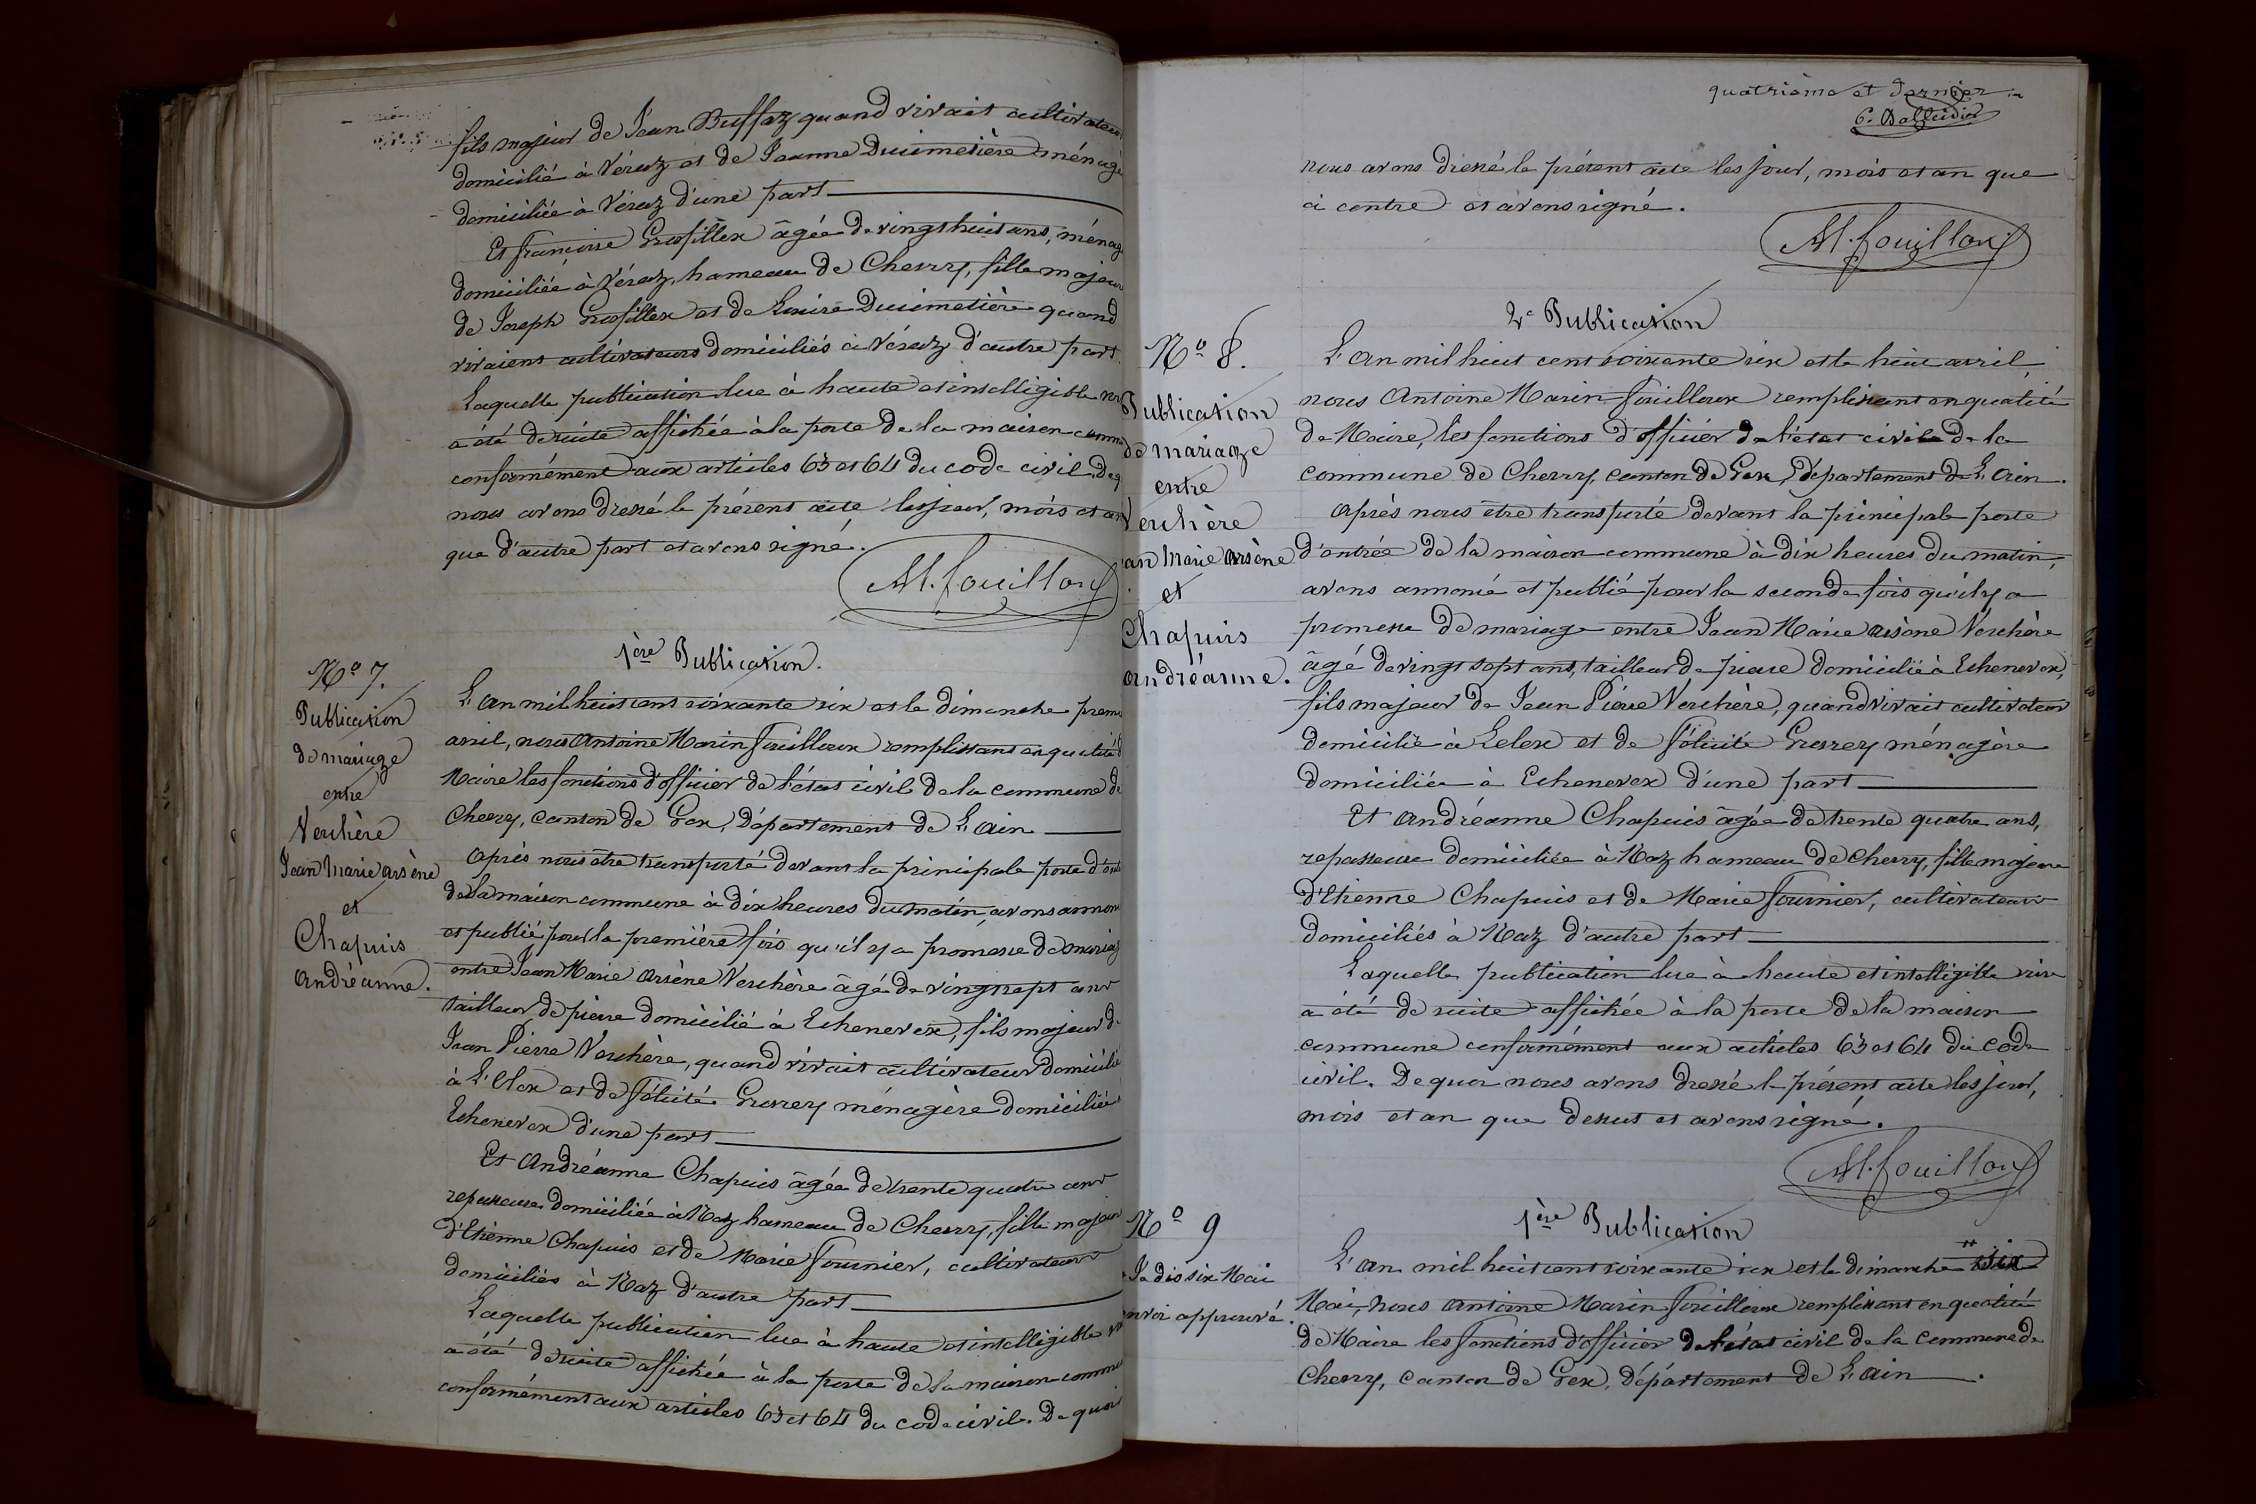 fils majeur de Jean Buffaz quand vivait cultivateur
domicilié à Véraz et de Jeanne Ducimetière ménagè
domiciliée à Véraz d'une part
Et Françoise Grosfillex âgée de vingt huit ans, ménag
domiciliée à Véraz, hameau de Chevry, fille majeur
de Joseph Grosfillex et de Louise Ducimetière quand
vivaient cultivateurs domiciliés à Véraz d'autre part.
Laquelle publication lue à haute et intelligible voi
a été de suite affichée à la porte de la maison comm
conformément aux articles 63 et 64 du code civil. De q
nous avons dressé le présent acte les jour, mois et an
que d'autre part et avons signé.
AM. fouilloux
1ère Publication.
No 7.
Publication
de mariage
entre
Verchère
Jean Marie Arsène
et
Chapuis
Andréanne.
L'an mil huit cent soixante six et le dimanche premi
avril, nous Antoine Marin Fouilloux remplissant en qualité d
Maire les fonctions d'officier de l'état civil de la commune de
Chevry, canton de Gex, Département de L'Ain
Après nous être transporté devant la principale porte d'ent
de la maison commune à dix heures du matin, avons annon
et publié pour la première fois qu'il y a promesse de mariag
entre Jean Marie Arsène Verchère âgé de vingt sept ans
tailleur de pierre domicilié à Echenevex, fils majeur de
Jean Pierre Verchère, quand vivait cultivateur domicilié
à L'Elex et de Félicité Grossey ménagère domiciliée
Echenevex d'une part
Et Andréanne Chapuis âgée de trente quatre ans
repasseuse domiciliée à Naz hameau de Chevry, fille majeur
d'Etienne Chapuis et de Marie Fournier, cultivateurs
domiciliés à Naz d'autre part
Laquelle publication lue à haute et intelligible voi
a été de suite affichée à la porte de la maison commu
conformément aux articles 63 et 64 du code civil. De quoi
quatrième et dernier
nous avons dressé le présent acte les jour, mois et an que
ci contre et avons signé.
AM. fouilloux
2e Publication
No 8.
Publication
de mariage
entre
Verchère
an Marie Arsène
et
Chapuis
Andréanne.
L'an mil huit cent soixante six et le huit avril,
nous Antoine Marin Fouilloux remplissant en qualité
de Maire, les fonctions d'officier de l'état civil de la
commune de Chevry, canton de Gex, département de L'Ain.
Après nous être transporté devant la principale porte
d'entrée de la maison commune à dix heures du matin,
avons annoncé et publié pour la seconde fois qu'il y a
promesse de mariage entre Jean Marie Arsène Verchère
âgé de vingt sept ans, tailleur de pierre domicilié à Echenevex,
fils majeur de Jean Pierre Verchère, quand vivait cultivateur
domicilié à Lelex et de Félicité Grossey ménagère
domiciliée à Echenevex d'une part
Et Andréanne Chapuis âgée de trente quatre ans,
repasseuse domiciliée à Naz hameau de Chevry, fille majeure
d'Etienne Chapuis et de Marie Fournier, cultivateurs
domiciliés à Naz d'autre part
Laquelle publication lue à haute et intelligible voix
a été de suite affichée à la porte de la maison
commune conformément aux articles 63 et 64 du code
civil. De quoi nous avons dressé le présent acte les jour,
mois et an que dessus et avons signé.
AM. fouilloux
1ère Publication
No 9
Je dis six Mai
nvoi approuvé.
L'an mil huit cent soixante six et le dimanche six
Mai, nous Antoine Marin Fouilloux remplissant en qualité
de Maire les fonctions d'officier de l'état civil de la commune de
Chevry, canton de Gex, département de L'Ain.